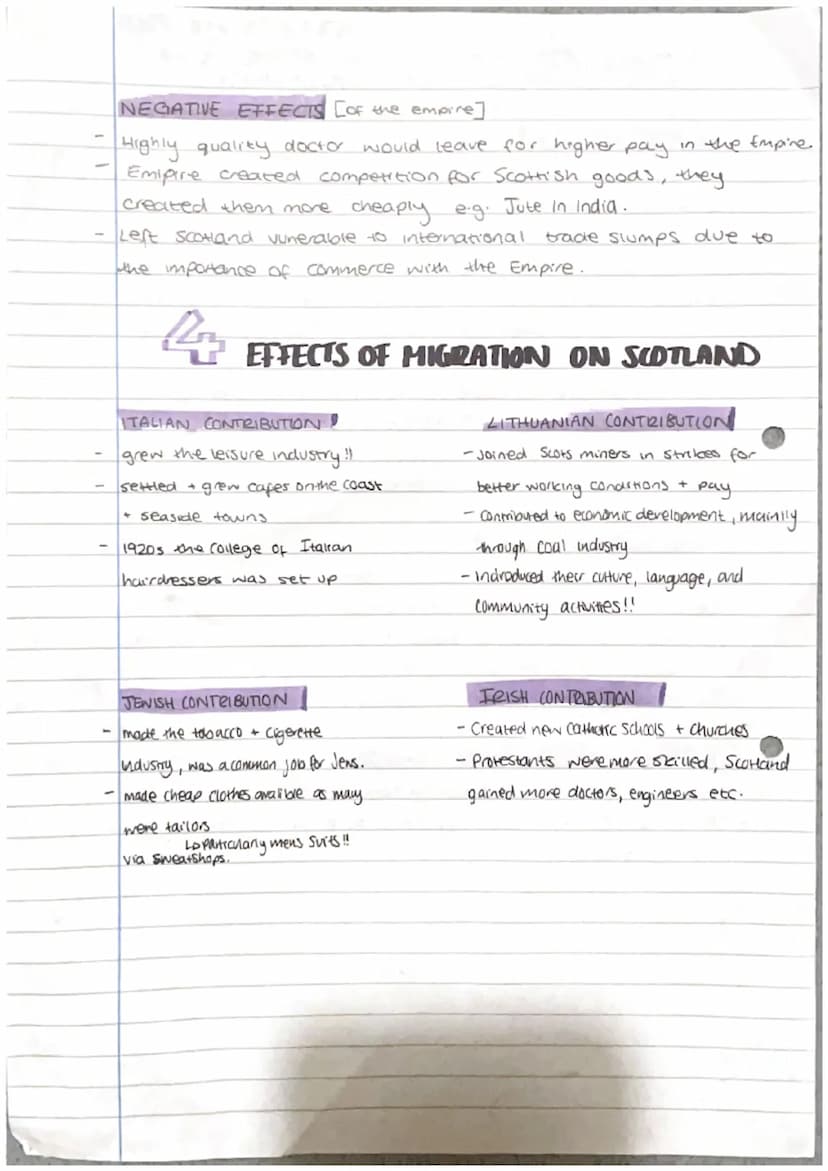 NEGATIVE EFFECTS [of the empire]
- Highly quality doctor would leave for higher pay in the Empire.
- Emipire created competition for Scottish goods, they
created them more cheaply e.g. Jute in India.
- Left Scotland vunerable to international trade slumps due to
the importance of commerce with the Empire.
4 EFFECTS OF MIGRATION ON SCOTLAND
ITALIAN CONTRIBUTION
- grew the leisure industry!!
- settled + grew cafes on the coast
+ seaside towns
- 1920s the College of Italian
hairdressers was set up
LITHUANIAN CONTRIBUTION
- Joined Scots miners in strikes for
better working conditions + pay
- Contributed to economic development, mainly
through coal industry
- Indroduced their culture, language, and
community activities!!
JEWISH CONTRIBUTION
- made the tobacco + cigerette
industry, was a common job for Jews.
- made cheap clothes availible as many
were tailors
↳ particularly mens suits!!
via sweatshops.
IRISH CONTRIBUTION
- Created new Catholic Schools + Churches
- Protestants were more skilled, Scotland
gained more doctors, engineers etc.